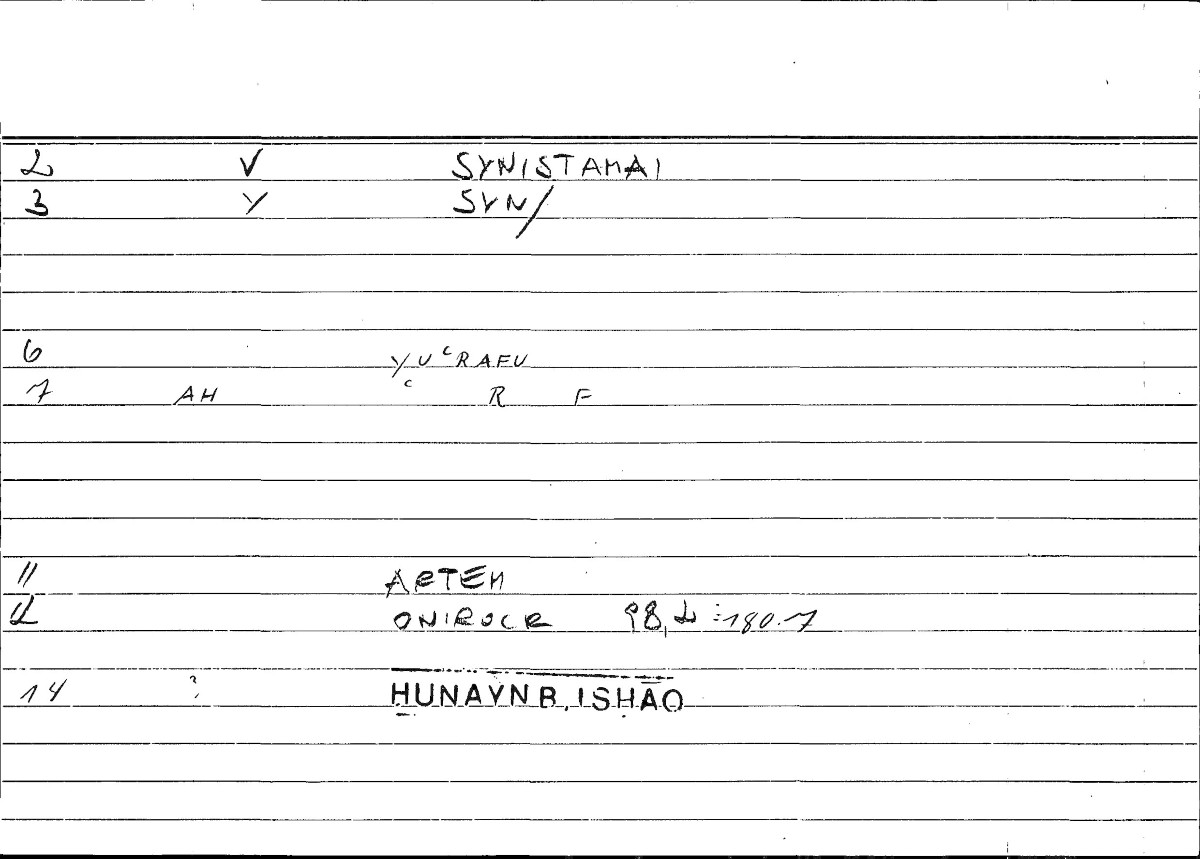 2 V SYNISTAMAI
3 Y SYN/
6 YUᶜRAFU
7 AH ᶜ R F
11 ARTEM
12 ONIROCR 98,2 : 180.7
14 ? HUNAYN B. ISḤĀQ